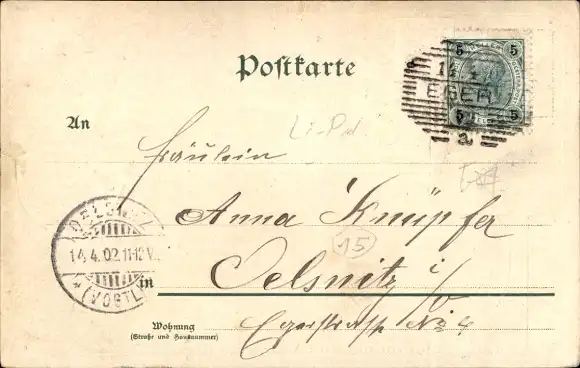 Postkarte
5 5
14 4
EGER
5 5
a
An
Fräulein
Anna Knüpfer
15
OELSNITZ
14.4.02.11-12V.
* (VOGTL.)
in Oelsnitz i/V
Wohnung
(Straße und Hausnummer)
Egerstrasse No 4